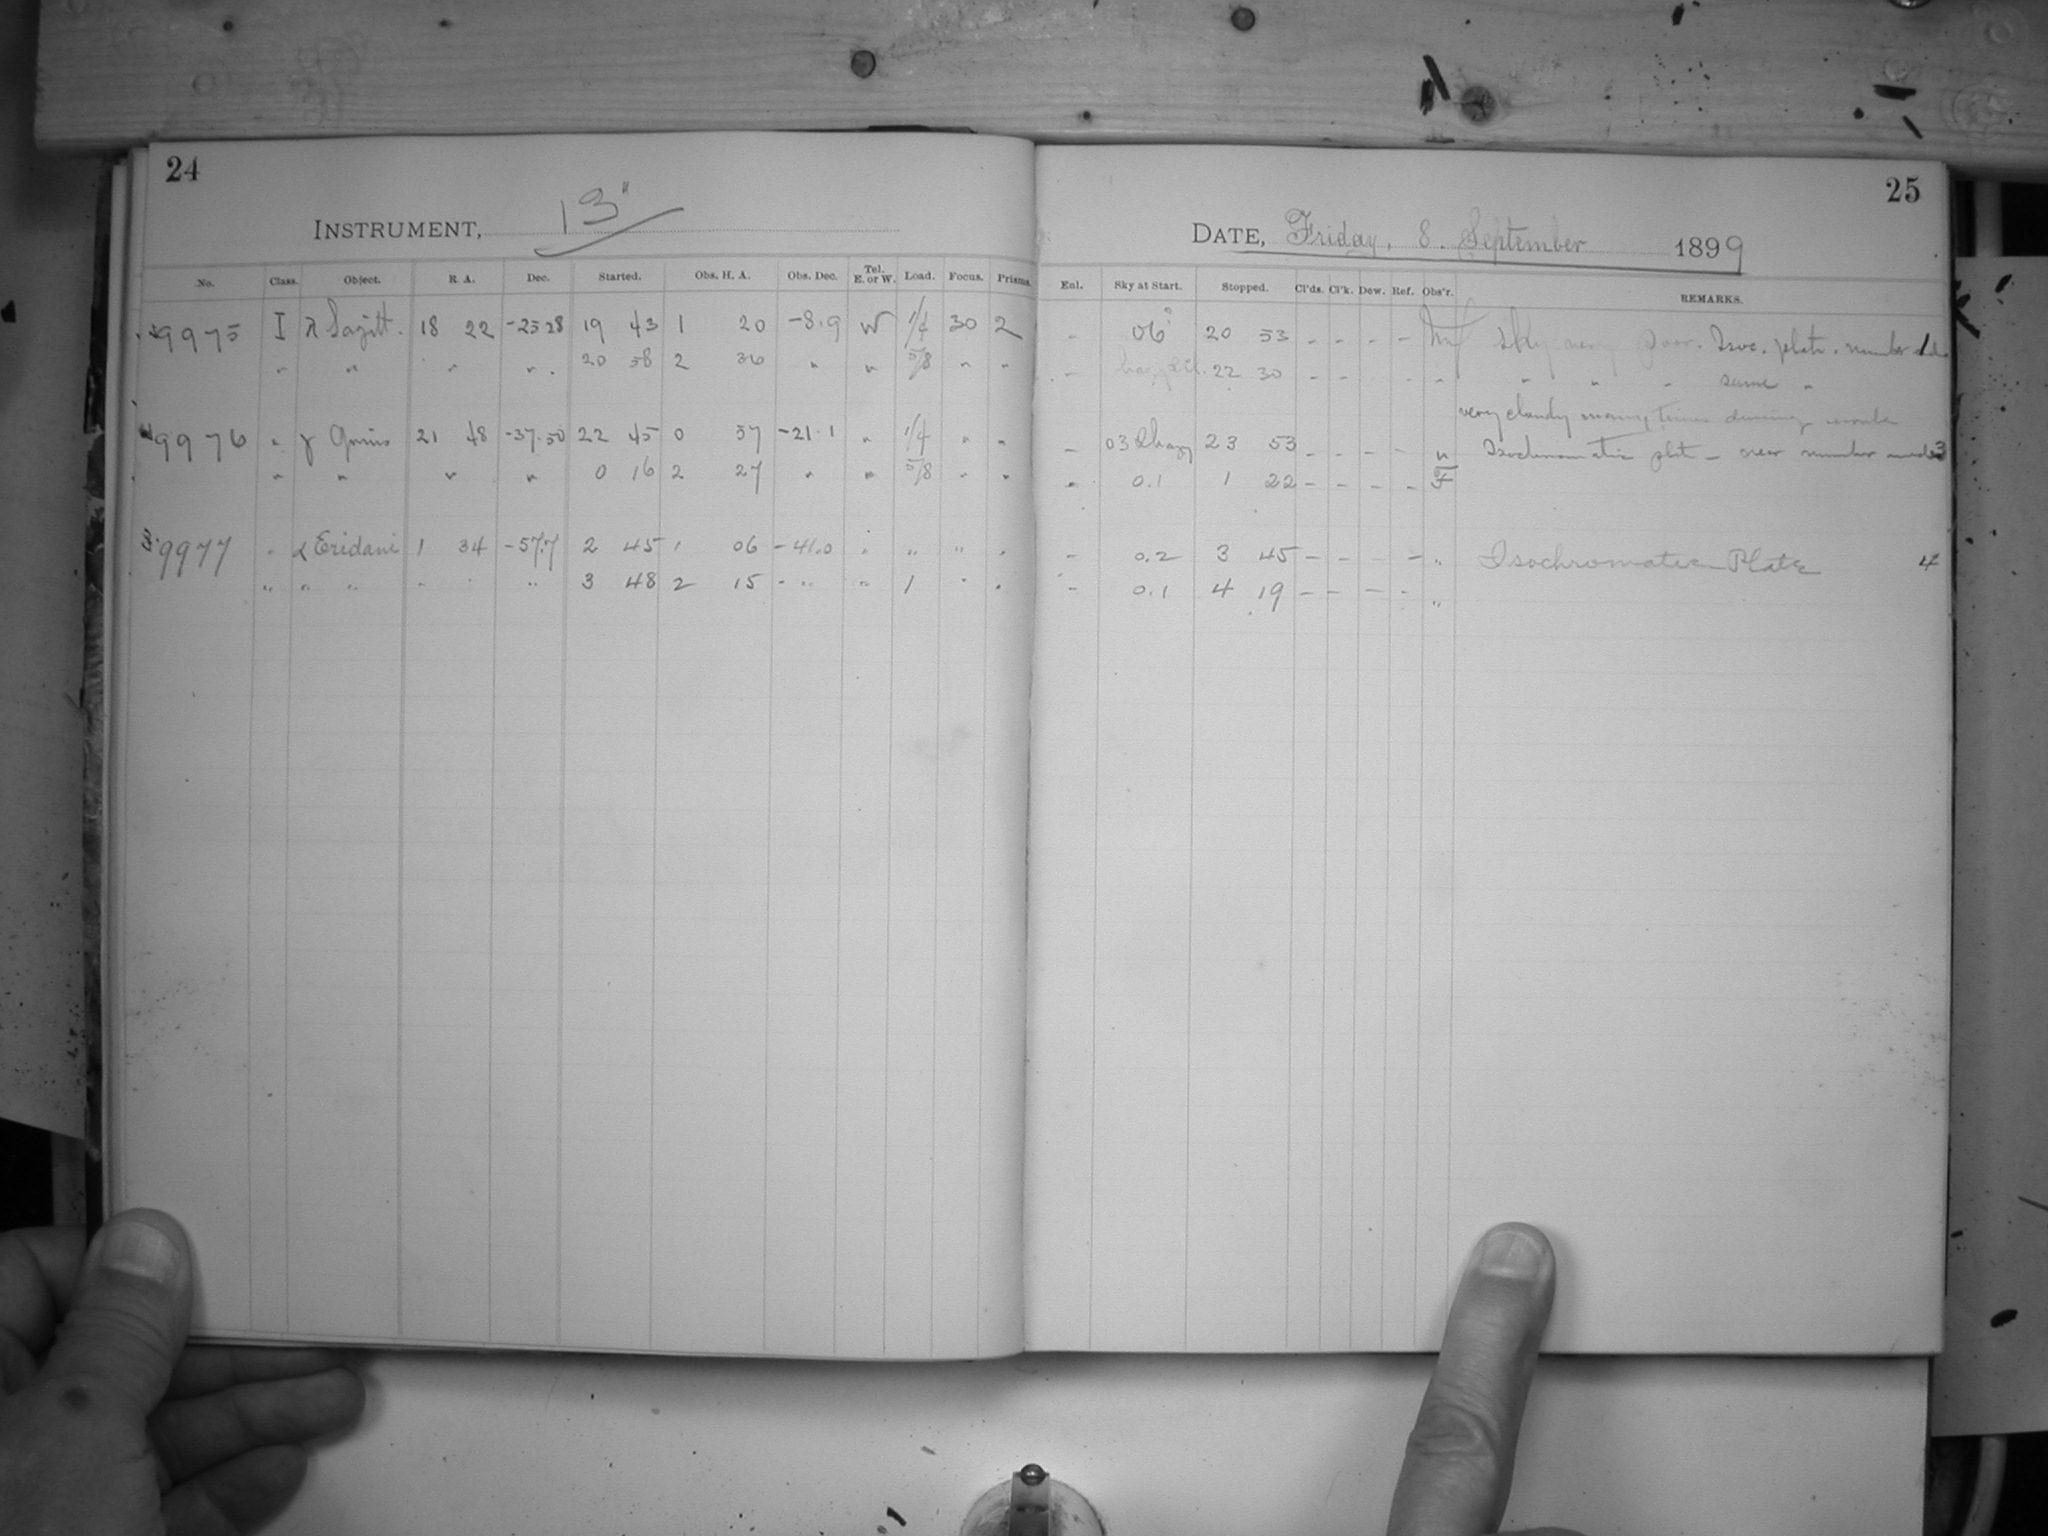 24
INSTRUMENT, 13"
No. Class. Object. R. A. Dec. Started. Obs. H. A. Obs. Dec. Tel. E. or W. Load. Focus. Prisms.
9975 I λ Sagitt. 18 22 -25 28 19 43 1 20 -8.9 W 1/4 30 2
" " " " 20 58 2 36 " " 5/8 " "
9976 " γ Gruis 21 48 -37.50 22 45 0 57 -21.1 " 1/4 " "
" " " " 0 16 2 27 " " 5/8 " "
9977 " α Eridani 1 34 -57.7 2 45 1 06 -41.0 " " " "
" " " " " 3 48 2 15 - " " 1 " "
25
DATE, Friday, 8. September 1899
Enl. Sky at Start. Stopped. Cl'ds. Cl'k. Dew. Ref. Obs'r. REMARKS.
- 06 20 53 - - - - Sky very poor. Isoc. plate. number 1
- hazy & Cl. 22 30 - - - " " " " same "
very cloudy many times during
- 03 & hazy 23 53 - - - - " Isochromatic plate - over number 3
" 0.1 1 22 - - - - F
- 0.2 3 45 - - - " Isochromatic Plate 4
- 0.1 4 19 - - - - "